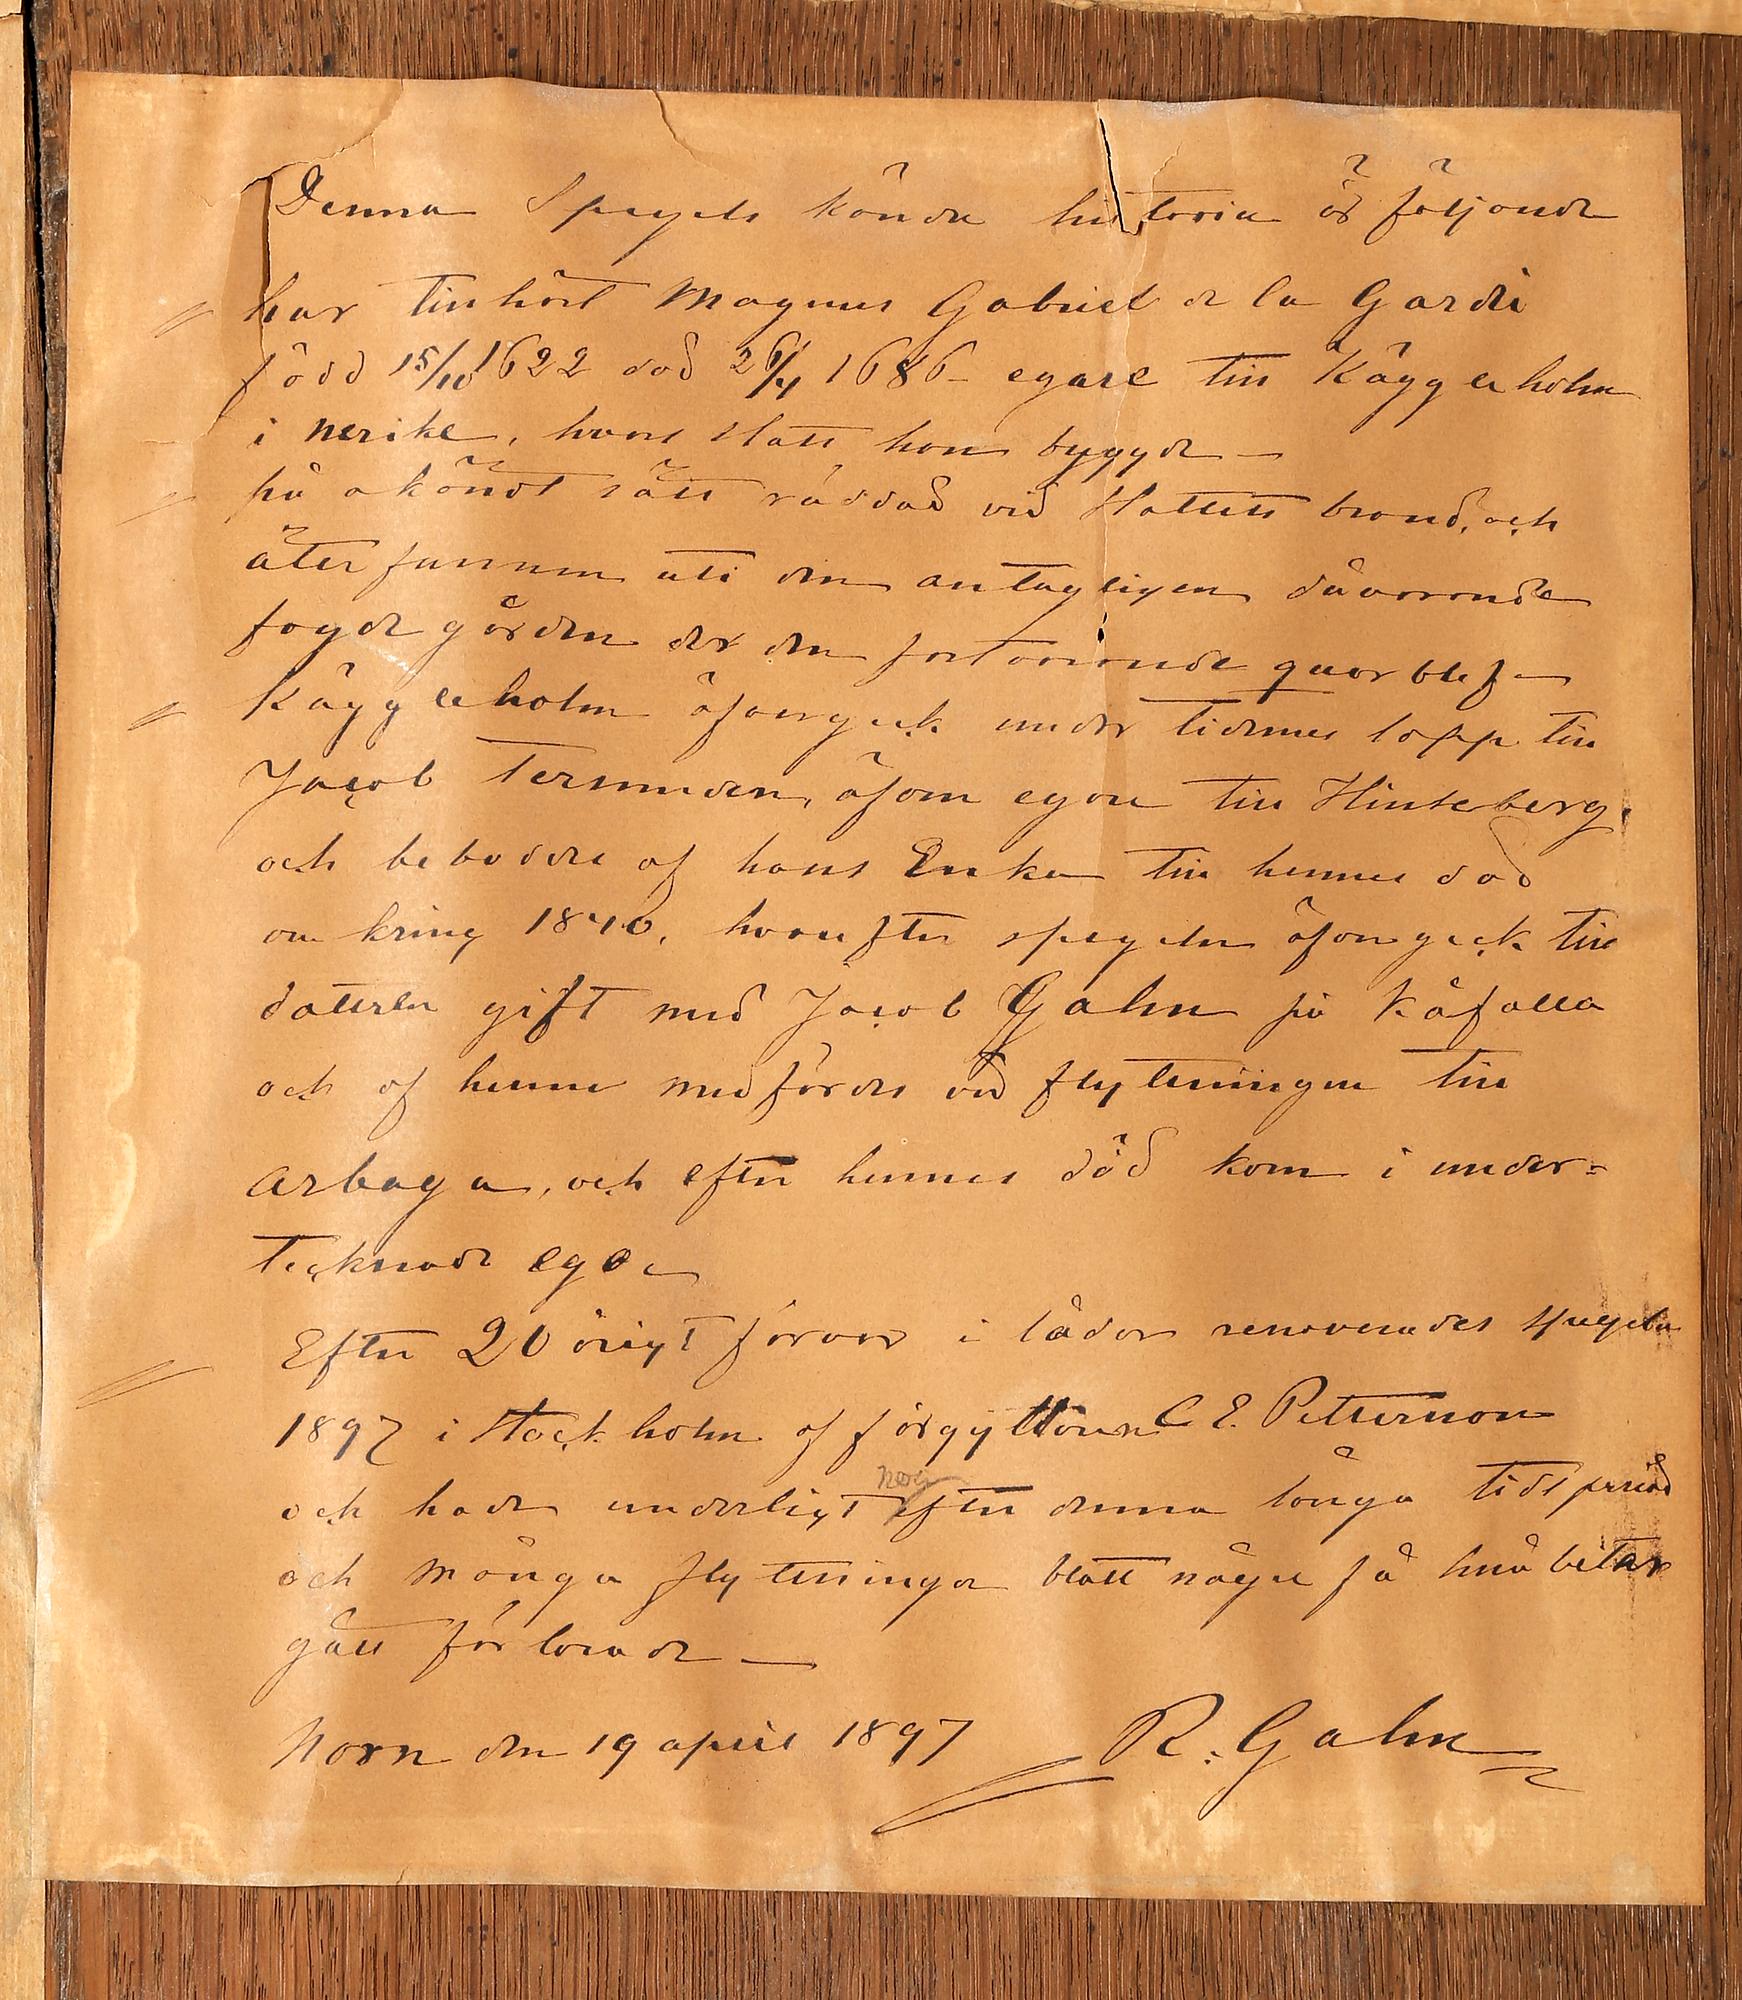 Denna Spegels kända historia är följande
har tillhört Magnus Gabriel de la Gardie
född 15/10 1622 död 26/4 1686 – egare till Kägg leholm
i Nerike, hvars slott han byggde –
på okändt sätt räddad vid slottets brand, och
återfunnen uti den antagligen dåvarande
fogde gården der den fortfarande quarblef –
Kägg leholm öfvergick under tidernas lopp till
Jacob Tersmeden, äfven egare till Hinseberg,
och beboddes af hans Enka till hennes död
omkring 1840, hvarefter spegeln öfvergick till
dottren gift med Jacob Gahn på Kåfalla
och af henne medfördes vid flyttningen till
Arboga, och efter hennes död kom i under=
tecknade ego
Efter 20 årigt förvar i lådor renoverades spegeln
1897 i Stockholm af förgyllaren C E. Petterson
och hade underligt nog efter denna långa tidsperiod
och många flyttningar blott några få små bitar
gått förlorade –
Norn den 19 april 1897 R. Gahn